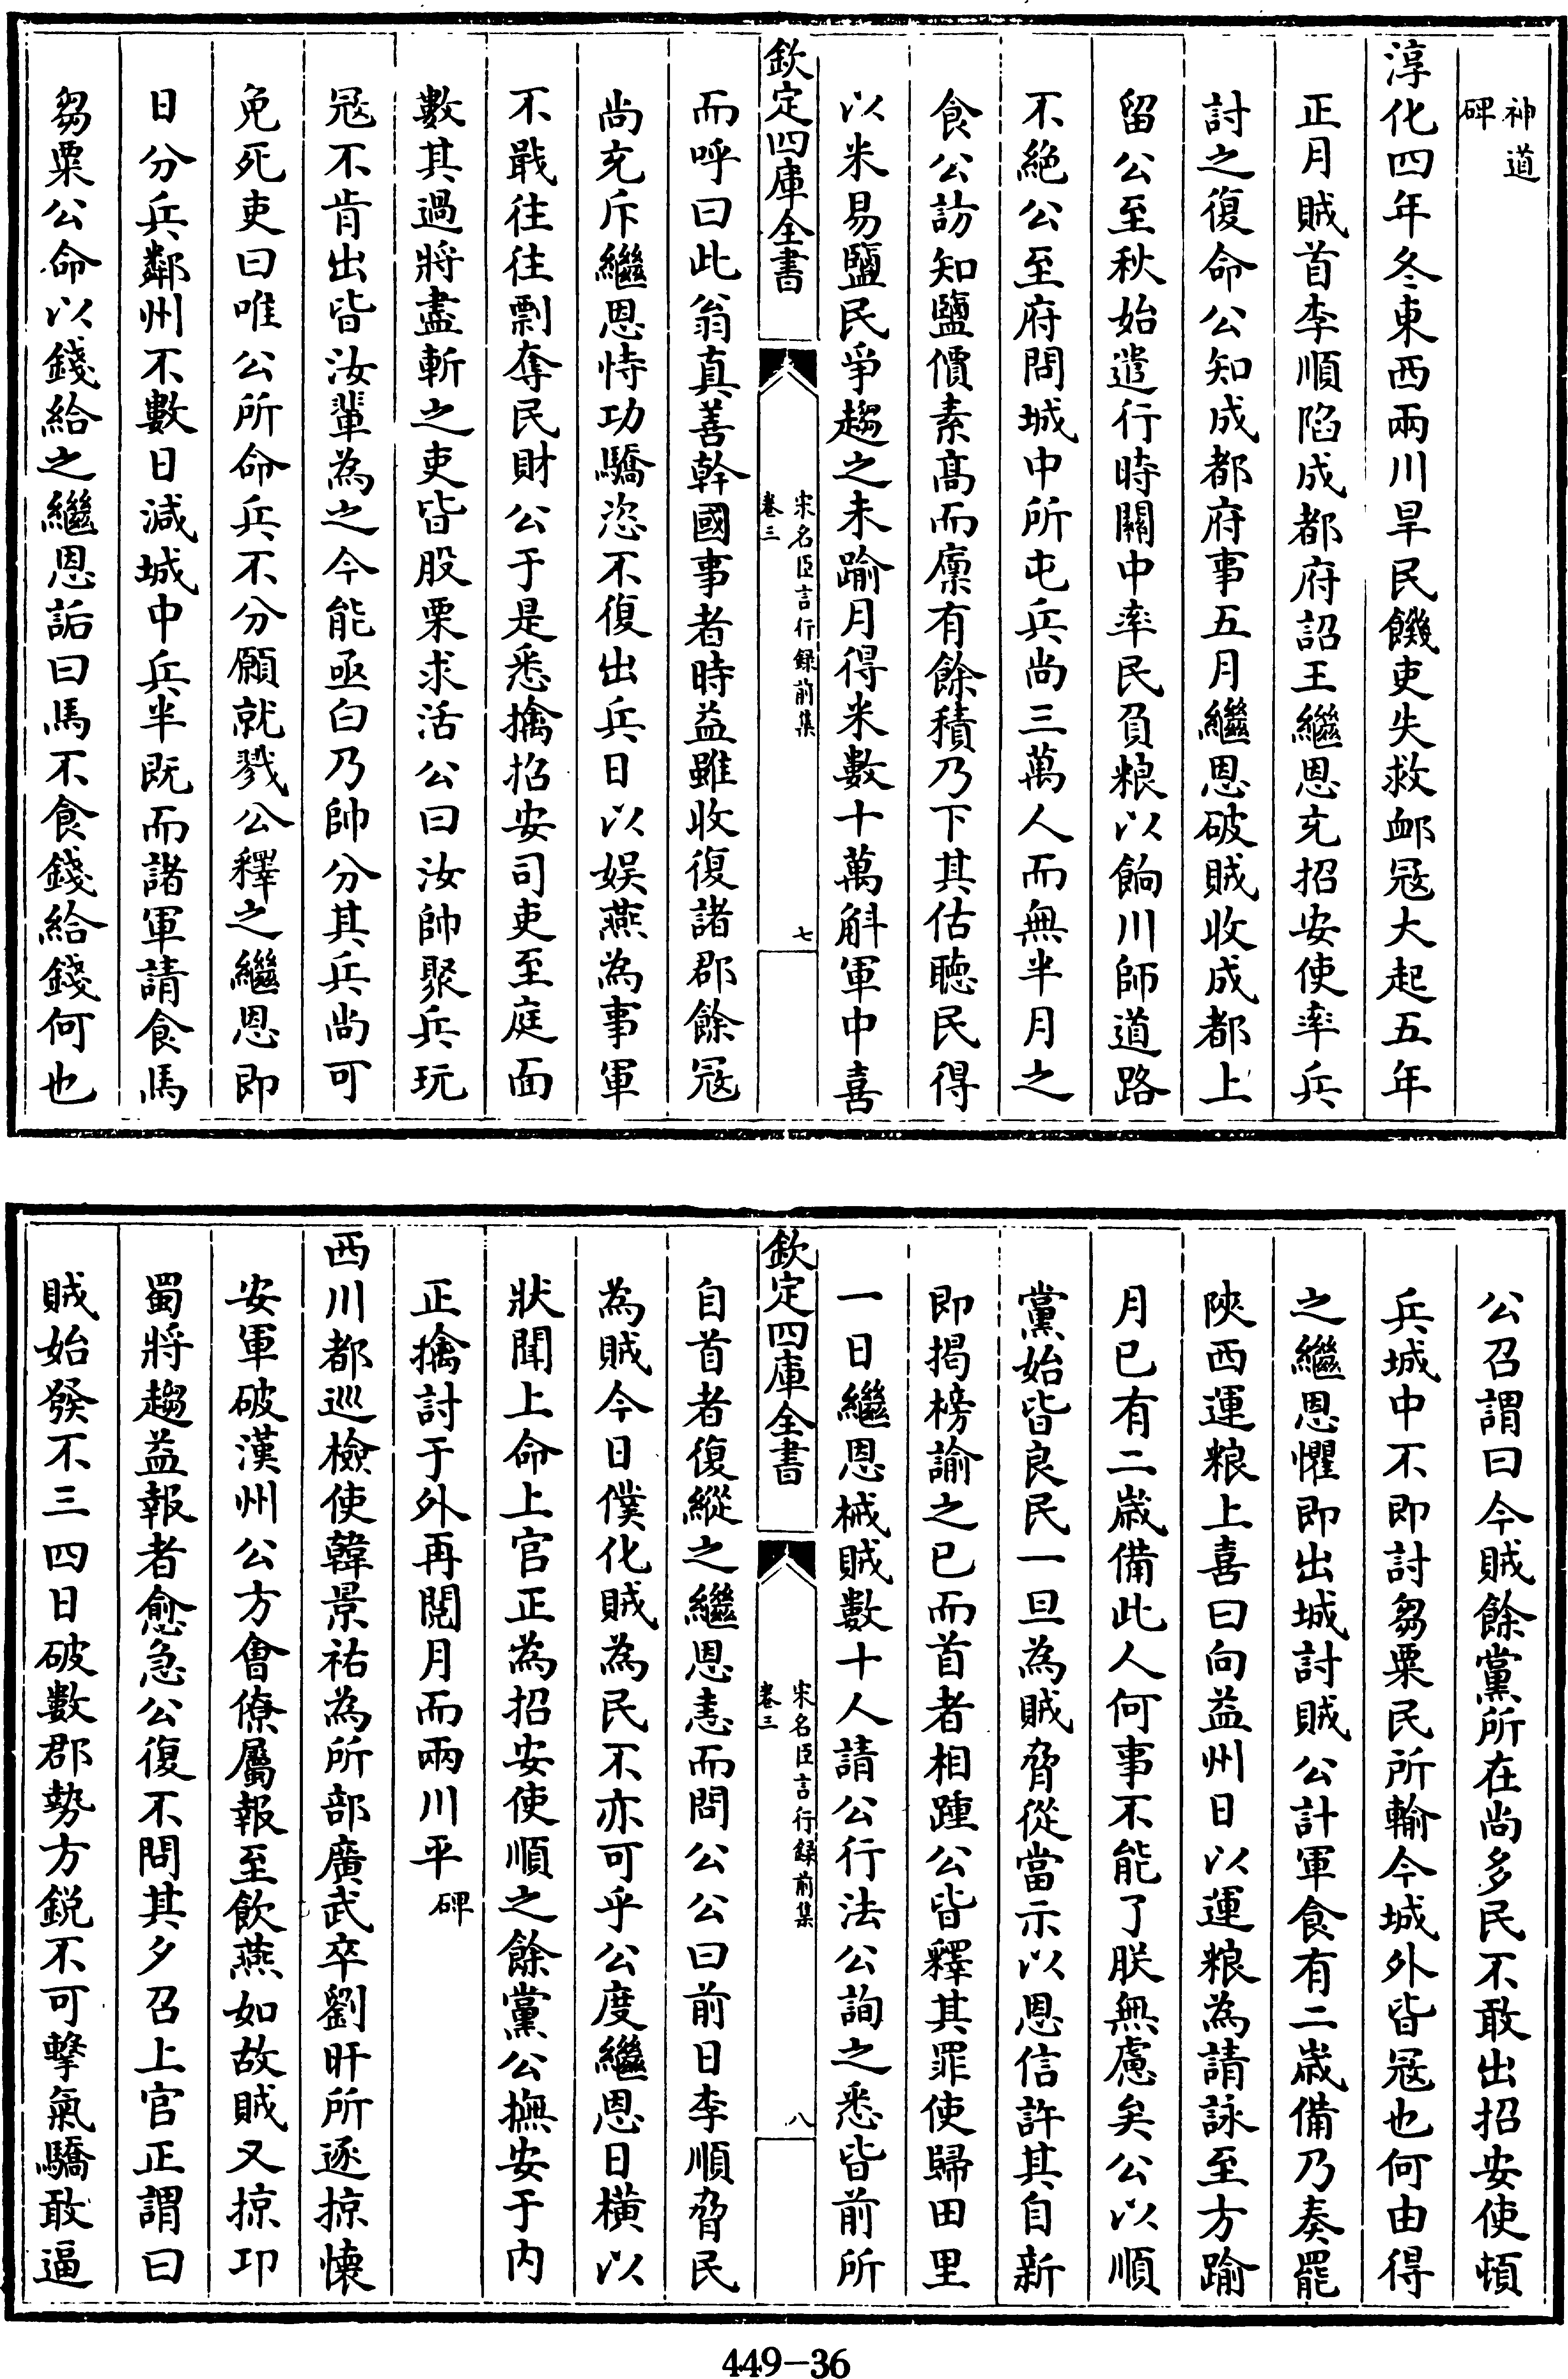 神道
碑
淳化四年冬東西兩川旱民饑吏失救䘏冦大起五年
正月賊首李順陷成都府詔王繼恩充招安使率兵
討之復命公知成都府事五月繼恩破賊收成都上
留公至秋始遣行時關中率民負粮以餉川師道路
不絶公至府問城中所屯兵尚三萬人而無半月之
食公訪知鹽價素髙而廪有餘積乃下其估聽民得
以米易鹽民爭趨之未踰月得米數十萬斛軍中喜
欽定四庫全書
宋名臣言行録前集
卷三
七
而呼曰此翁真善幹國事者時益雖收復諸郡餘冦
尚充斥繼恩恃功驕恣不復出兵日以娱燕為事軍
不戢往往剽奪民財公于是悉擒招安司吏至庭面
數其過將盡斬之吏皆股栗求活公曰汝帥聚兵玩
冦不肯出皆汝輩為之今能亟白乃帥分其兵尚可
免死吏曰唯公所命兵不分願就戮公釋之繼恩即
日分兵鄰州不數日減城中兵半既而諸軍請食馬
芻粟公命以錢給之繼恩詬曰馬不食錢給錢何也
公召謂曰今賊餘黨所在尚多民不敢出招安使頓
兵城中不即討芻粟民所輸今城外皆冦也何由得
之繼恩懼即出城討賊公計軍食有二歳備乃奏罷
陜西運粮上喜曰向益州日以運粮為請詠至方踰
月已有二歳備此人何事不能了朕無慮矣公以順
黨始皆良民一旦為賊脅從當示以恩信許其自新
即揭榜諭之已而首者相踵公皆釋其罪使歸田里
一日繼恩械賊數十人請公行法公詢之悉皆前所
欽定四庫全書
宋名臣言行録前集
卷三
八
自首者復縱之繼恩恚而問公公曰前日李順脅民
為賊今日僕化賊為民不亦可乎公度繼恩日横以
狀聞上命上官正為招安使順之餘黨公撫安于内
正擒討于外再閲月而兩川平 碑
西川都巡檢使韓景祐為所部廣武卒劉旰所逐掠懐
安軍破漢州公方會僚屬報至飲燕如故賊又掠卭
蜀將趨益報者愈急公復不問其夕召上官正謂曰
賊始發不三四日破數郡勢方鋭不可擊氣驕敢逼
449-36